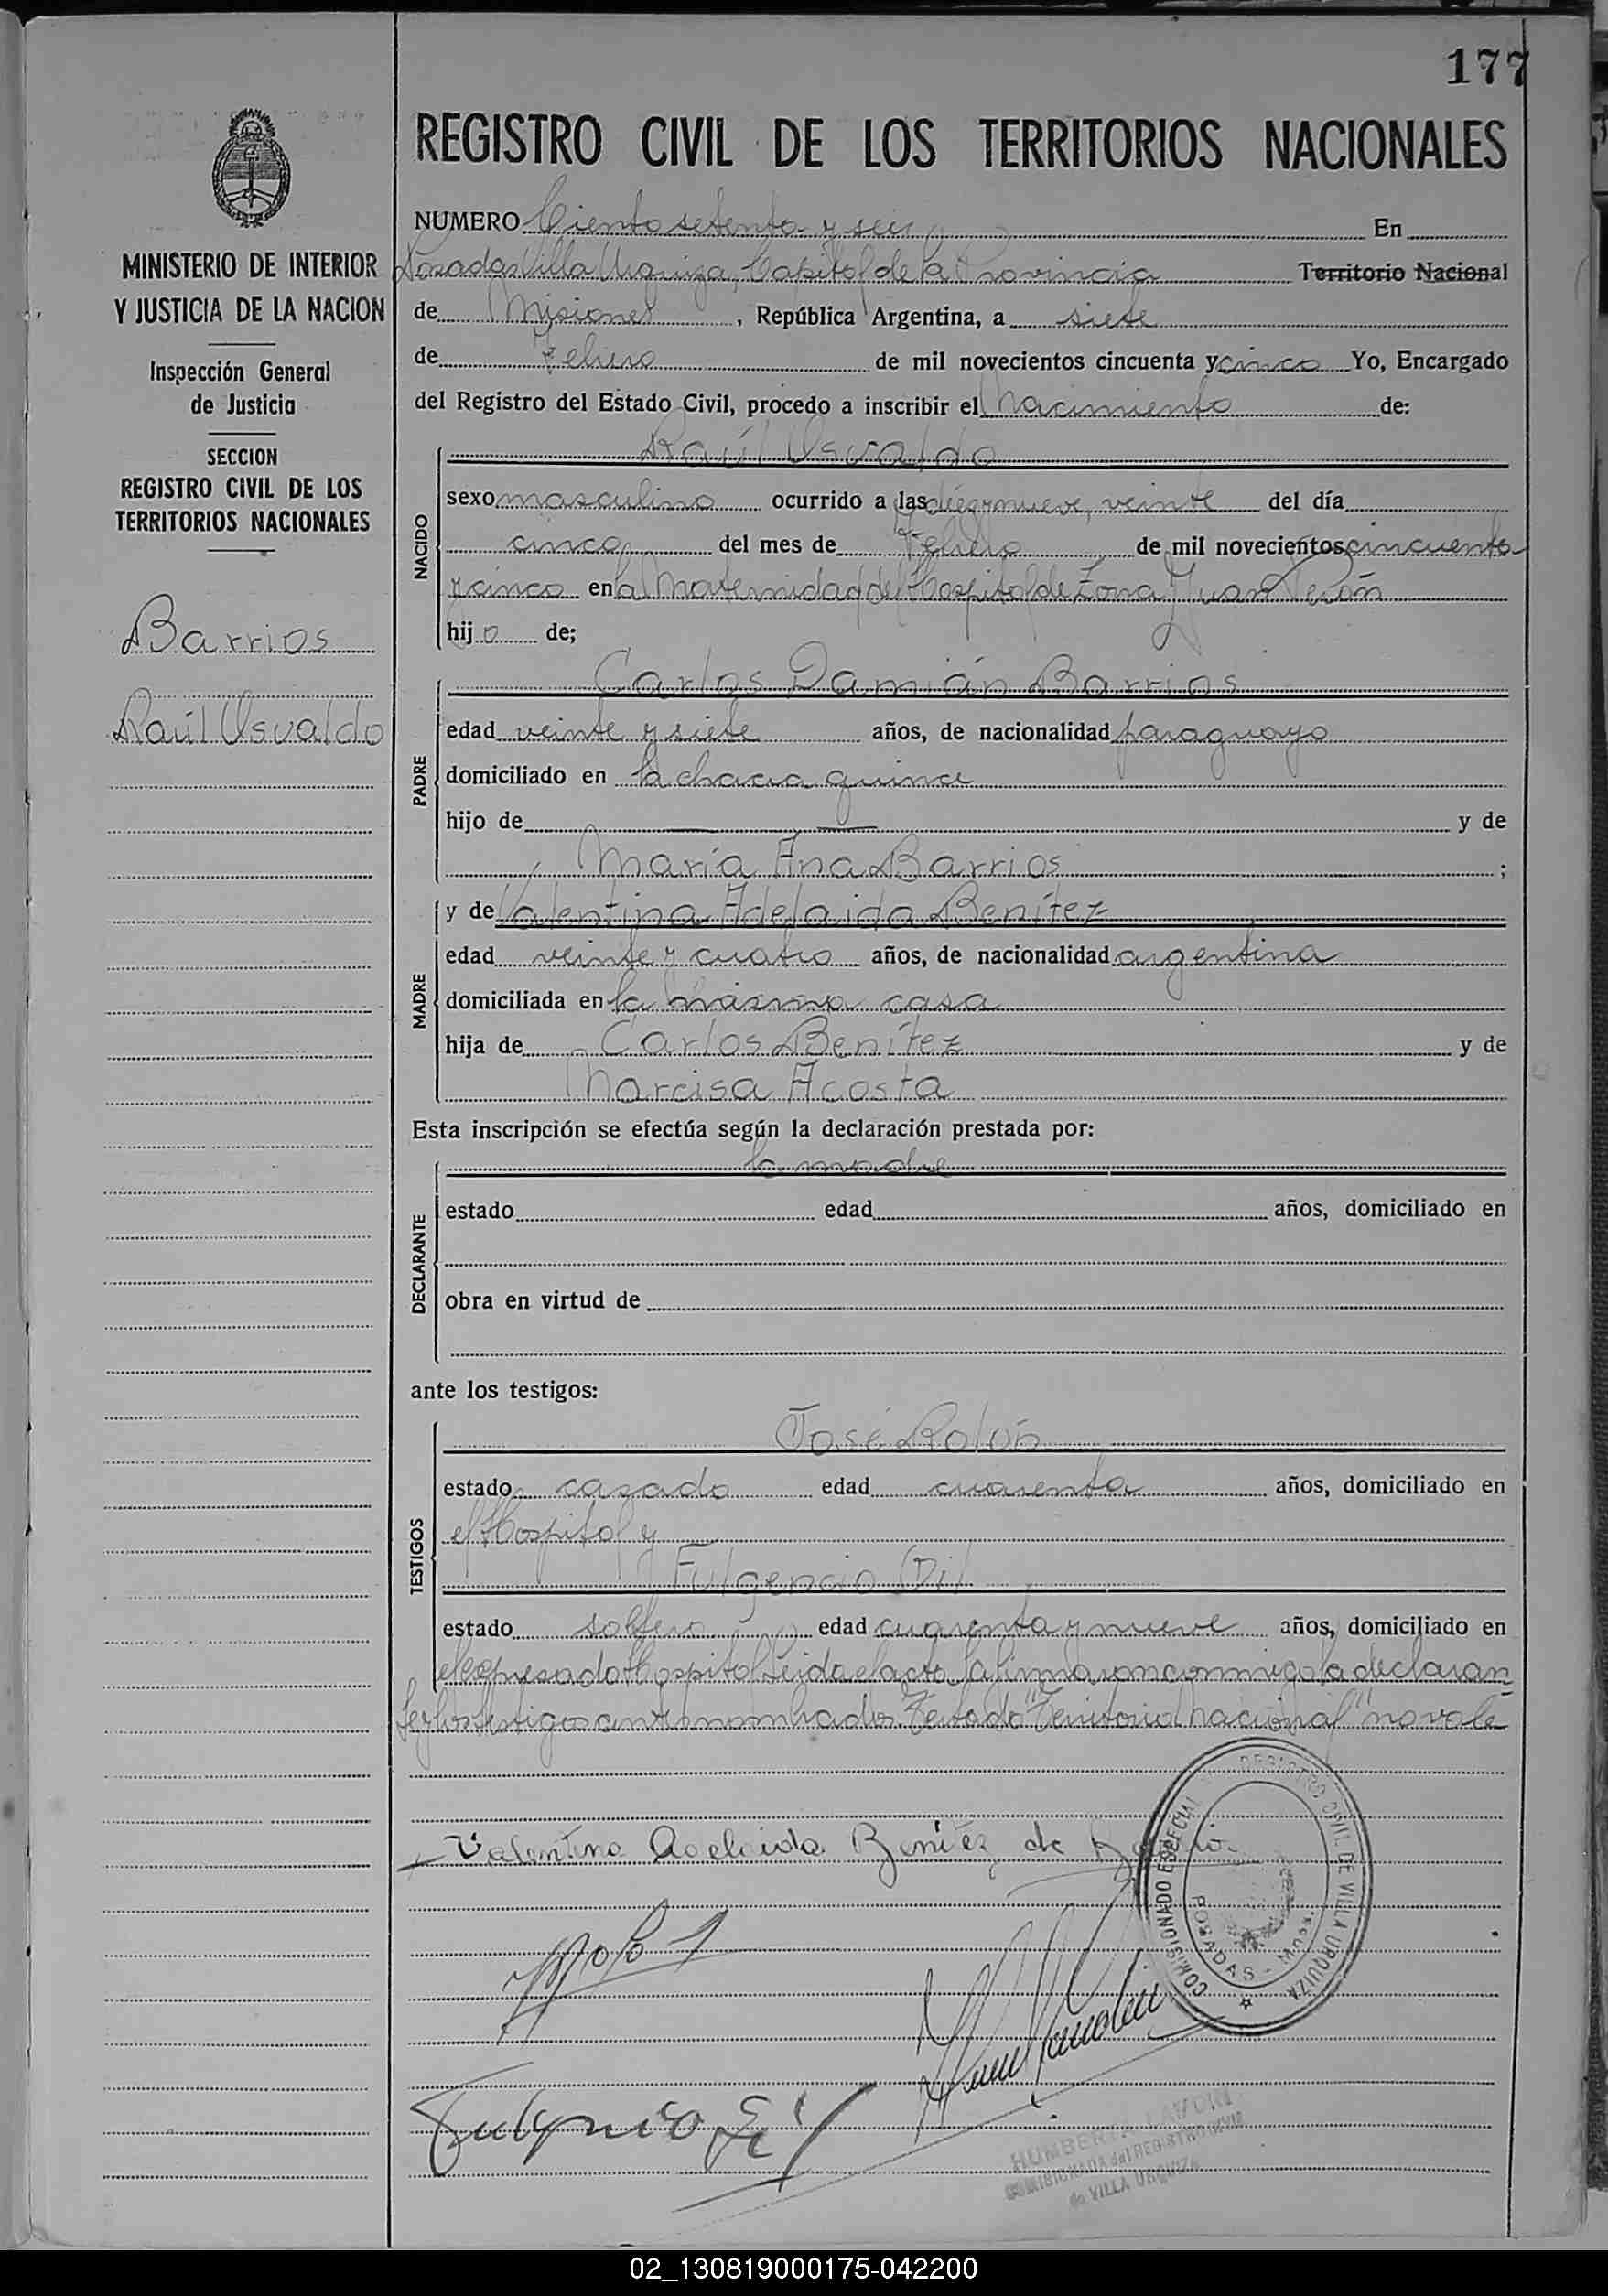 177
REGISTRO CIVIL DE LOS TERRITORIOS NACIONALES
MINISTERIO DE INTERIOR
Y JUSTICIA DE LA NACION
Inspección General
de Justicia
SECCION
REGISTRO CIVIL DE LOS
TERRITORIOS NACIONALES
Barrios
Raúl Usvaldo
NUMERO Ciento setenta y seis En
Posadas Villa Urquiza, Capital de la Provincia Territorio Nacional
de Misiones, República Argentina, a siete
de Febrero de mil novecientos cincuenta y cinco Yo, Encargado
del Registro del Estado Civil, procedo a inscribir el Nacimiento de:
Raúl Usvaldo
NACIDO
sexo masculino ocurrido a las diez y nueve, veinte del día
cinco del mes de Febrero de mil novecientos cincuenta
y cinco en la Maternidad del Hospital de Zona Juan Perón
hijo de;
Carlos Damián Barrios
PADRE
edad veinte y siete años, de nacionalidad paraguayo
domiciliado en la chacra quince
hijo de — y de
María Ana Barrios ;
y de Valentina Adelaida Benítez
MADRE
edad veinte y cuatro años, de nacionalidad argentina
domiciliada en la misma casa
hija de Carlos Benítez y de
Narcisa Acosta
Esta inscripción se efectúa según la declaración prestada por:
la madre
DECLARANTE
estado edad años, domiciliado en
obra en virtud de
ante los testigos:
José Rolón
TESTIGOS
estado casado edad cuarenta años, domiciliado en
el Hospital y
Fulgencio Gil
estado soltero edad cuarenta y nueve años, domiciliado en
el expresado Hospital Leida el acta, la firmaron conmigo la declaran
te y los testigos antes nombrados. Testado "Territorio Nacional" no vale
Valentina Adelaida Benítez de Barrio
REGISTRO CIVIL DE VILLA URQUIZA
COMISIONADO ESPECIAL
POSADAS - Mnes.
Fulgencio Gil
HUMBERTO
COMISIONADA del REGISTRO CIVIL
de VILLA URQUIZA
02_130819000175-042200